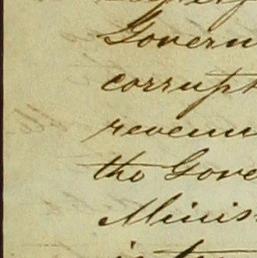 Govern
corrupt
revenu
the Gove
Minis